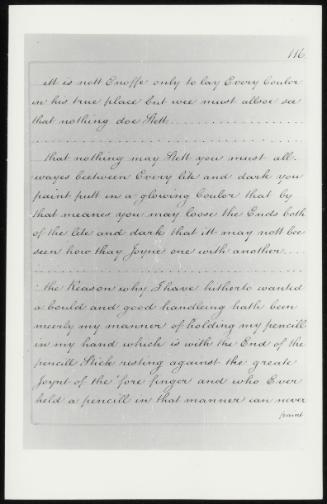 116.
itt is nott Enoffe only to lay Every Coulor
in his true place but wee must allsoe see
that nothing doe Stott . . . . . . . . . . . . . . . . .
. . . . . . . . . . . . . . . . . . . . . . . . . . . . . .
that nothing may Stott you must all-
wayes between Every lite and dark you
paint putt in a glowing Coulor that by
that meanes you may loose the Ends both
of the lite and dark that itt may nott bee
seen how thay Joyne one with another . . .
. . . . . . . . . . . . . . . . . . . . . . . . . . . . . .
the Reason why I have hitherto wanted
a bould and good handleing hath been
meerly my manner of holding my pencill
in my hand which is with the End of the
pencill Stick resting against the greate
Joynt of the fore finger and who Ever
held a pencill in that manner can never
paint